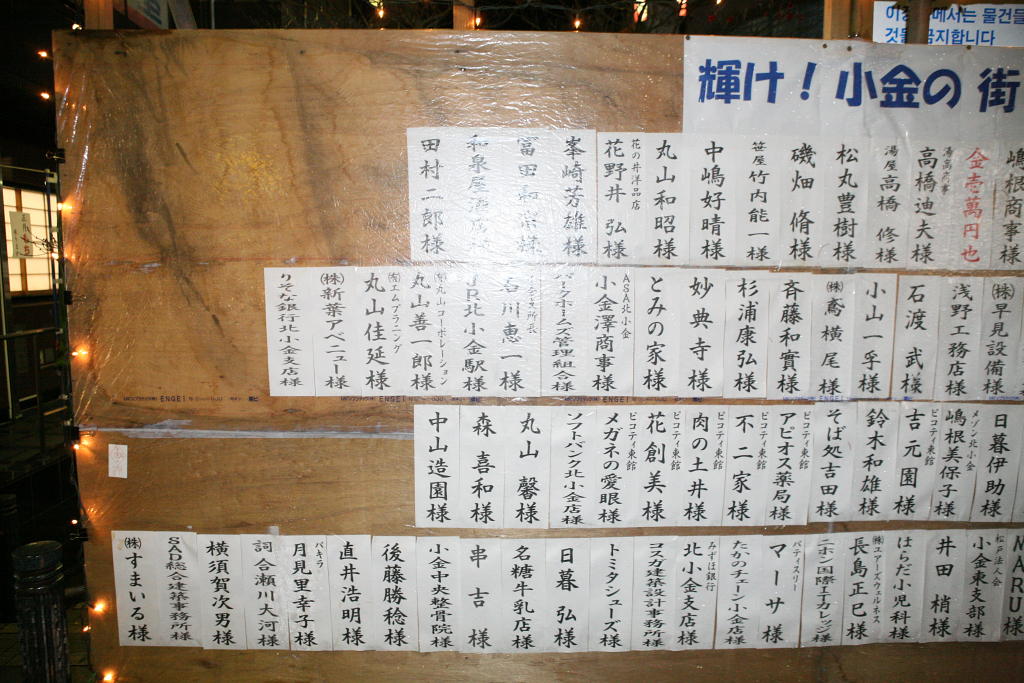 輝け！小金の街
嶋根商事様
金壱萬円也
湯高商事
高橋迪夫様
湯屋高橋 修様
松丸豊樹様
磯畑 脩様
笹屋竹内能一様
中嶋好晴様
丸山和昭様
花の井洋品店
花野井 弘様
峯崎芳雄様
冨田和宗様
和泉屋酒店様
田村二郎様
㈱早見設備様
浅野工務店様
石渡 武様
小山一孚様
㈱鳶横尾様
斉藤和實様
杉浦康弘様
妙典寺様
とみの家様
ASA北小金
小金澤商事様
パークホームズ管理組合様
石川恵一様
JR北小金駅様
㈲丸山コーポレーション
丸山善一郎様
㈲エムプラニング
丸山佳延様
㈱新葉アベニュー様
りそな銀行北小金支店様
日暮伊助様
メゾン北小金
嶋根美保子様
ピコティ東館
吉元園様
鈴木和雄様
そば処吉田様
ピコティ東館
アビオス薬局様
ピコティ東館
不二家様
ピコティ東館
肉の土井様
ピコティ東館
花創美様
ピコティ東館
メガネの愛眼様
ソフトバンク北小金店様
丸山 馨様
森 喜和様
中山造園様
MARU
松戸法人会
小金東支部様
井田 梢様
はらだ小児科様
㈱エアーズウェルネス
長島正巳様
ニホン国際ITカレッジ様
パティスリー
マーサ様
たかのチェーン小金店様
みずほ銀行
北小金支店様
コスガ建築設計事務所様
トミタシューズ様
日暮 弘様
名糖牛乳店様
串吉様
小金中央整骨院様
後藤勝稔様
直井浩明様
パキラ
月見里幸子様
詞合瀬川大河様
横須賀次男様
SAD総合建築事務所様
㈱すまいる様